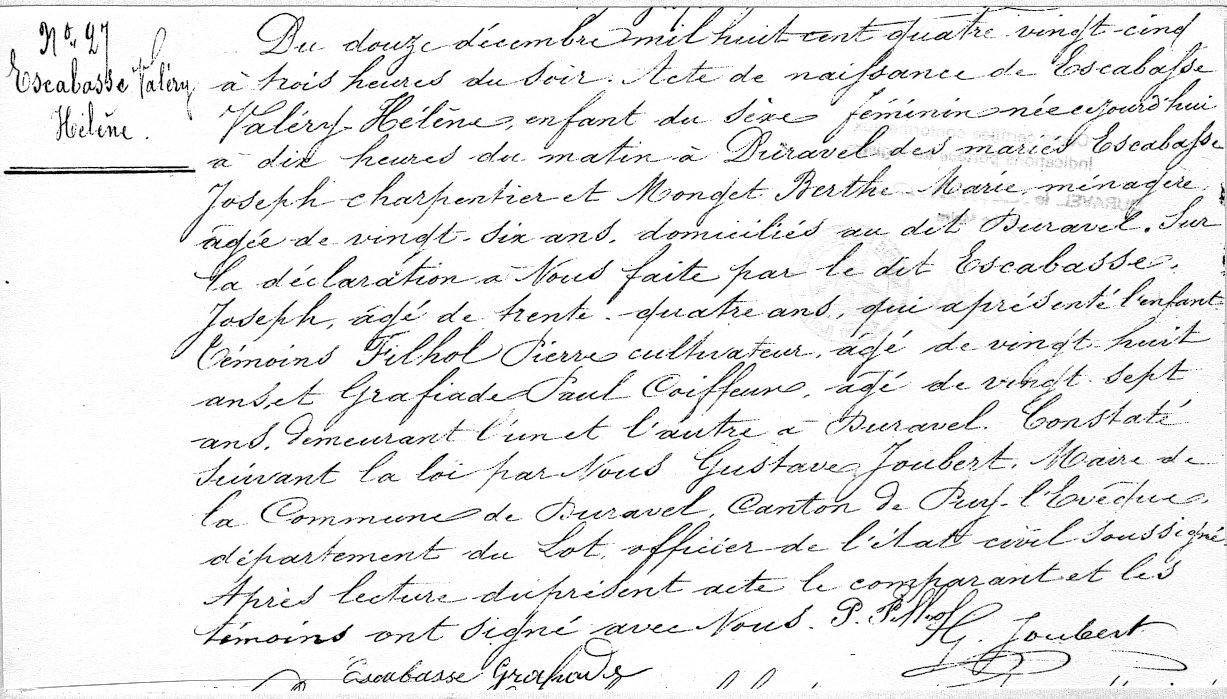 N° 27
Escabasse Valéry
Hélène.
Du douze décembre mil huit cent quatre vingt-cinq
à trois heures du soir. Acte de naissance de Escabasse
Valéry Hélène, enfant du sèxe féminin née cejourd'hui
à dix heures du matin à Duravel des mariés Escabasse
Joseph charpentier et Monget Berthe Marie, ménagère,
agée de vingt-six ans, domiciliés au dit Duravel. Sur
la déclaration à Nous faite par le dit Escabasse,
Joseph, agé de trente-quatre ans, qui a présenté l'enfant
Témoins Filhol Pierre cultivateur, agé de vingt huit
ans, et Grafiade Paul Coiffeur, agé de vingt sept
ans, demeurant l'un et l'autre à Duravel. Constaté
suivant la loi par Nous Gustave Joubert, Maire de
la Commune de Duravel, Canton de Puy-l'Evêque,
département du Lot, officier de l'état civil soussigné
Après lecture du présent acte le comparant et les
témoins ont signé avec Nous. P. Filhol
G. Joubert
Escabasse